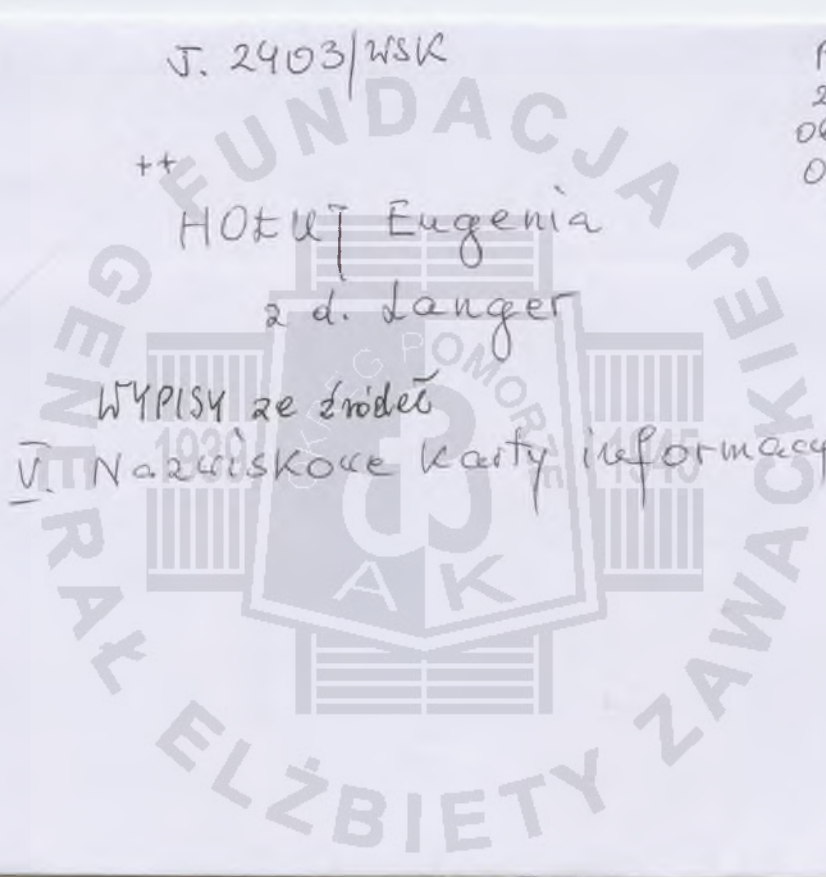 J. 2403/WSK
++
HOŁUJ Eugenia
z d. Langer
WYPISY ze źródeł
V. Nazwiskowe karty informacy
FUNDACJA GENERAŁ ELŻBIETY ZAWACKIEJ
OKRĘG POMORZE
1939 1945
AK